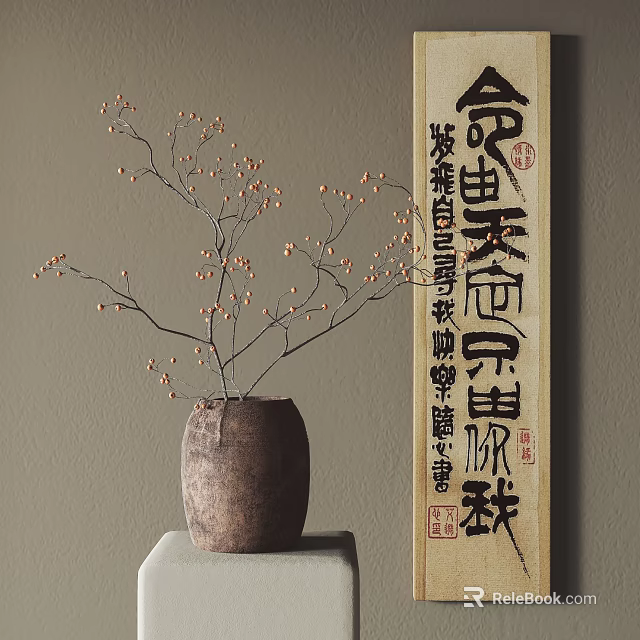 命由天定只由你我
放飛自己尋找快樂隨心書
ReleBook.com